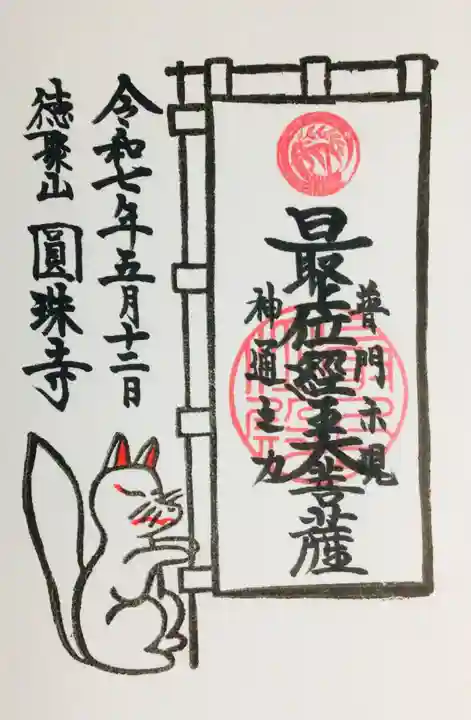 普門示現
最上位經王大菩薩
神通之力
令和七年五月十二日
徳聚山 圓珠寺